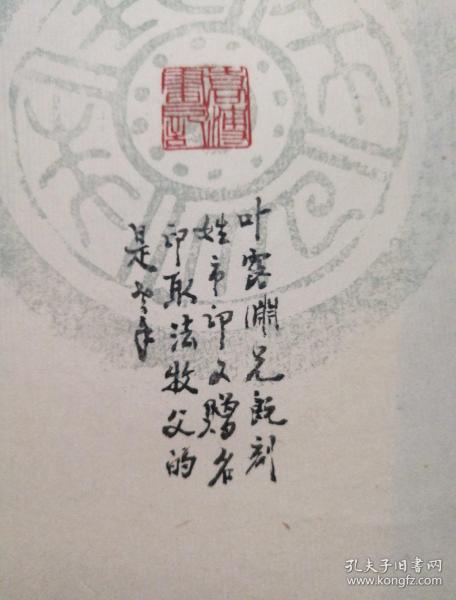 叶露淵兄既刻
姓氏印又赠名
印取法牧父的
是
孔夫子旧书网
www.kongfz.com